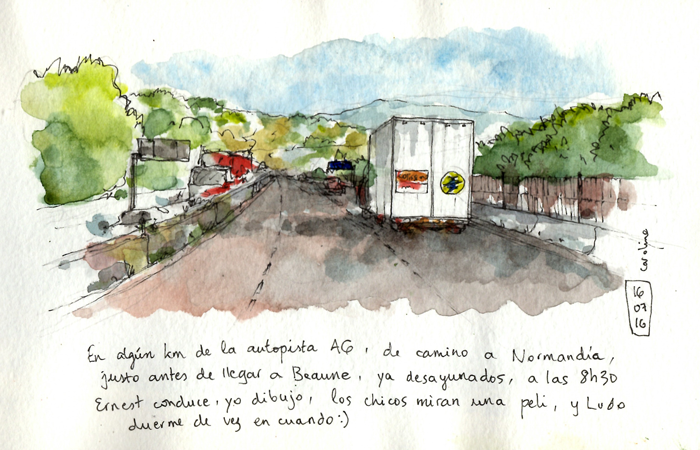 En algún km de la autopista A6, de camino a Normandía,
justo antes de llegar a Beaune, ya desayunados, a las 8h30
Ernest conduce, yo dibujo, los chicos miran una peli, y Ludo
duerme de vez en cuando :)
Carolina
16
07
16